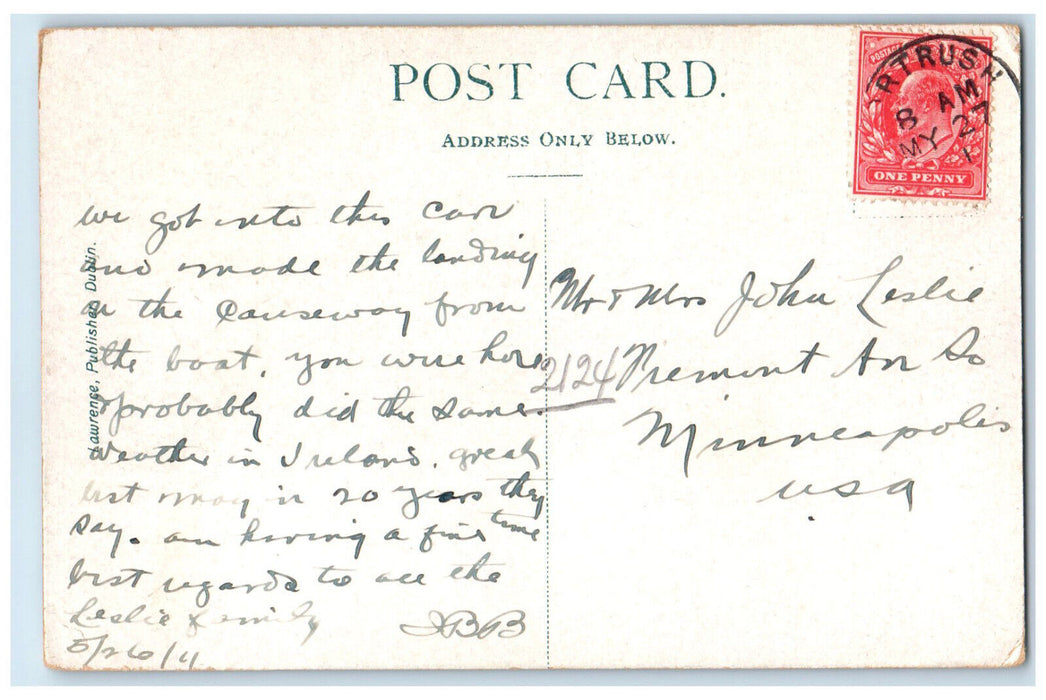 POST CARD.
ADDRESS ONLY BELOW.
POSTAGE
RTRUSH
8 AM
MY 27
1
ONE PENNY
we got into this car
and made the landing
on the Causeway from
the boat, you were here
& probably did the same.
Weather in Ireland, great
best may in 20 years they
say. am having a fine time
best regards to all the
Leslie family
JBB
5/26/11
Lawrence, Publisher, Dublin.
Mr & Mrs John Leslie
2124 Fremont Av So
Minneapolis
USA